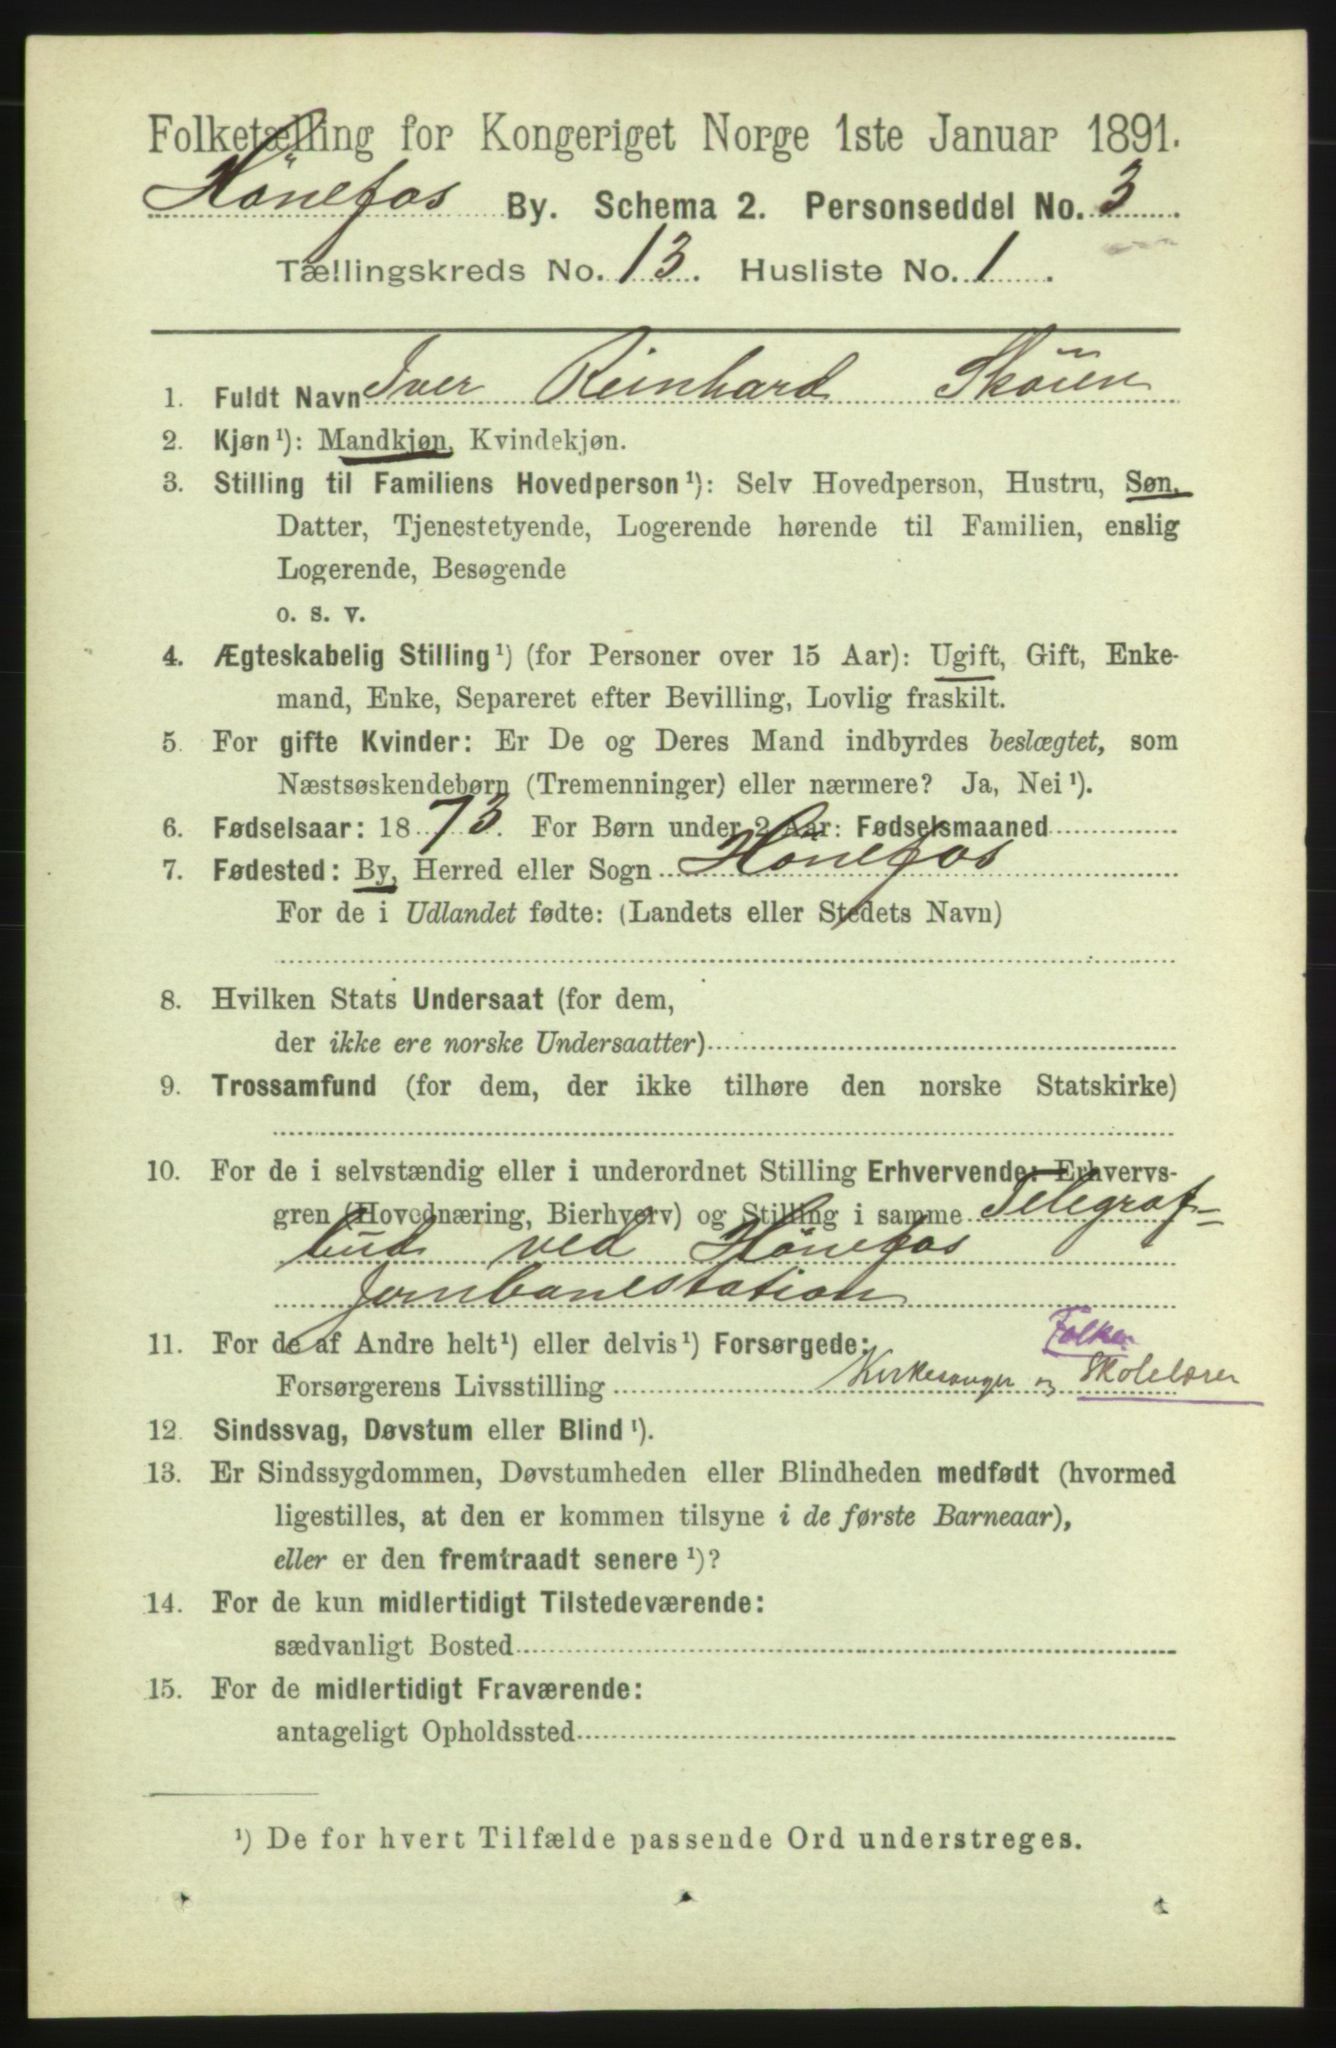 Folketælling for Kongeriget Norge 1ste Januar 1891.
Hönefos By. Schema 2. Personseddel No. 3
Tællingskreds No. 13. Husliste No. 1.
1. Fuldt Navn Iver Reinhard Sköien
2. Kjøn ¹): Mandkjøn, Kvindekjøn.
3. Stilling til Familiens Hovedperson ¹): Selv Hovedperson, Hustru, Søn,
Datter, Tjenestetyende, Logerende hørende til Familien, enslig
Logerende, Besøgende
o. s. v.
4. Ægteskabelig Stilling ¹) (for Personer over 15 Aar): Ugift, Gift, Enke-
mand, Enke, Separeret efter Bevilling, Lovlig fraskilt.
5. For gifte Kvinder: Er De og Deres Mand indbyrdes beslægtet, som
Næstsøskendebørn (Tremenninger) eller nærmere? Ja, Nei ¹).
6. Fødselsaar: 1873. For Børn under 2 Aar: Fødselsmaaned
7. Fødested: By, Herred eller Sogn Hönefos
For de i Udlandet fødte: (Landets eller Stedets Navn)
8. Hvilken Stats Undersaat (for dem,
der ikke ere norske Undersaatter)
9. Trossamfund (for dem, der ikke tilhøre den norske Statskirke)
10. For de i selvstændig eller i underordnet Stilling Erhvervende: Erhvervs-
gren (Hovednæring, Bierhverv) og Stilling i samme Telegraf-
bud ved Hönefos
Jernbanestation
11. For de af Andre helt ¹) eller delvis ¹) Forsørgede: Folke
Forsørgerens Livsstilling Kirkesanger og Skolelærer
12. Sindssvag, Døvstum eller Blind ¹).
13. Er Sindssygdommen, Døvstumheden eller Blindheden medfødt (hvormed
ligestilles, at den er kommen tilsyne i de første Barneaar),
eller er den fremtraadt senere ¹)?
14. For de kun midlertidigt Tilstedeværende:
sædvanligt Bosted
15. For de midlertidigt Fraværende:
antageligt Opholdssted
¹) De for hvert Tilfælde passende Ord understreges.